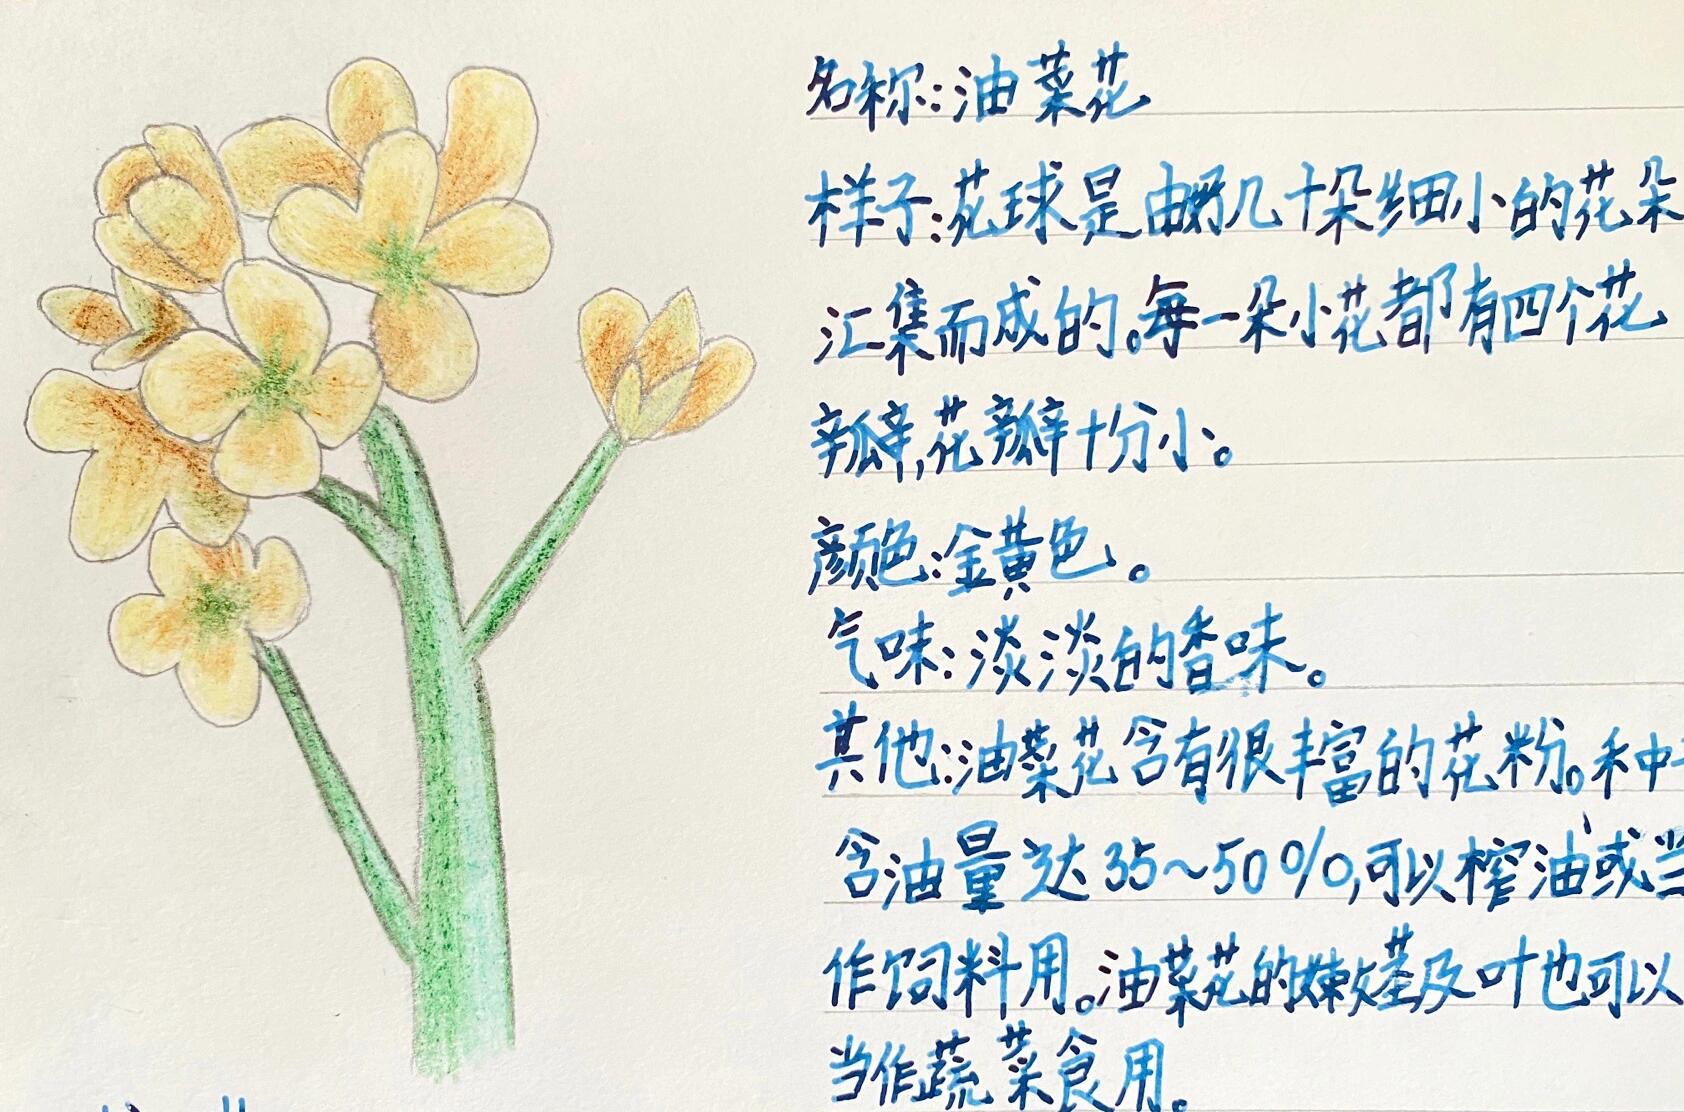 名称:油菜花
样子:花球是由好几十朵细小的花朵
汇集而成的。每一朵小花都有四个花
瓣,花瓣十分小。
颜色:金黄色。
气味:淡淡的香味。
其他:油菜花含有很丰富的花粉。种
含油量达35~50%,可以榨油或当
作饲料用。油菜花的嫩茎及叶也可以
当作蔬菜食用。